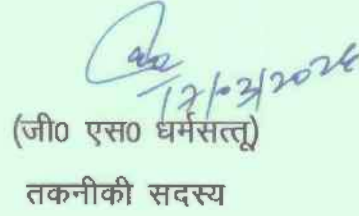 17/03/2026
(जी0 एस0 धर्मसत्तू)
तकनीकी सदस्य